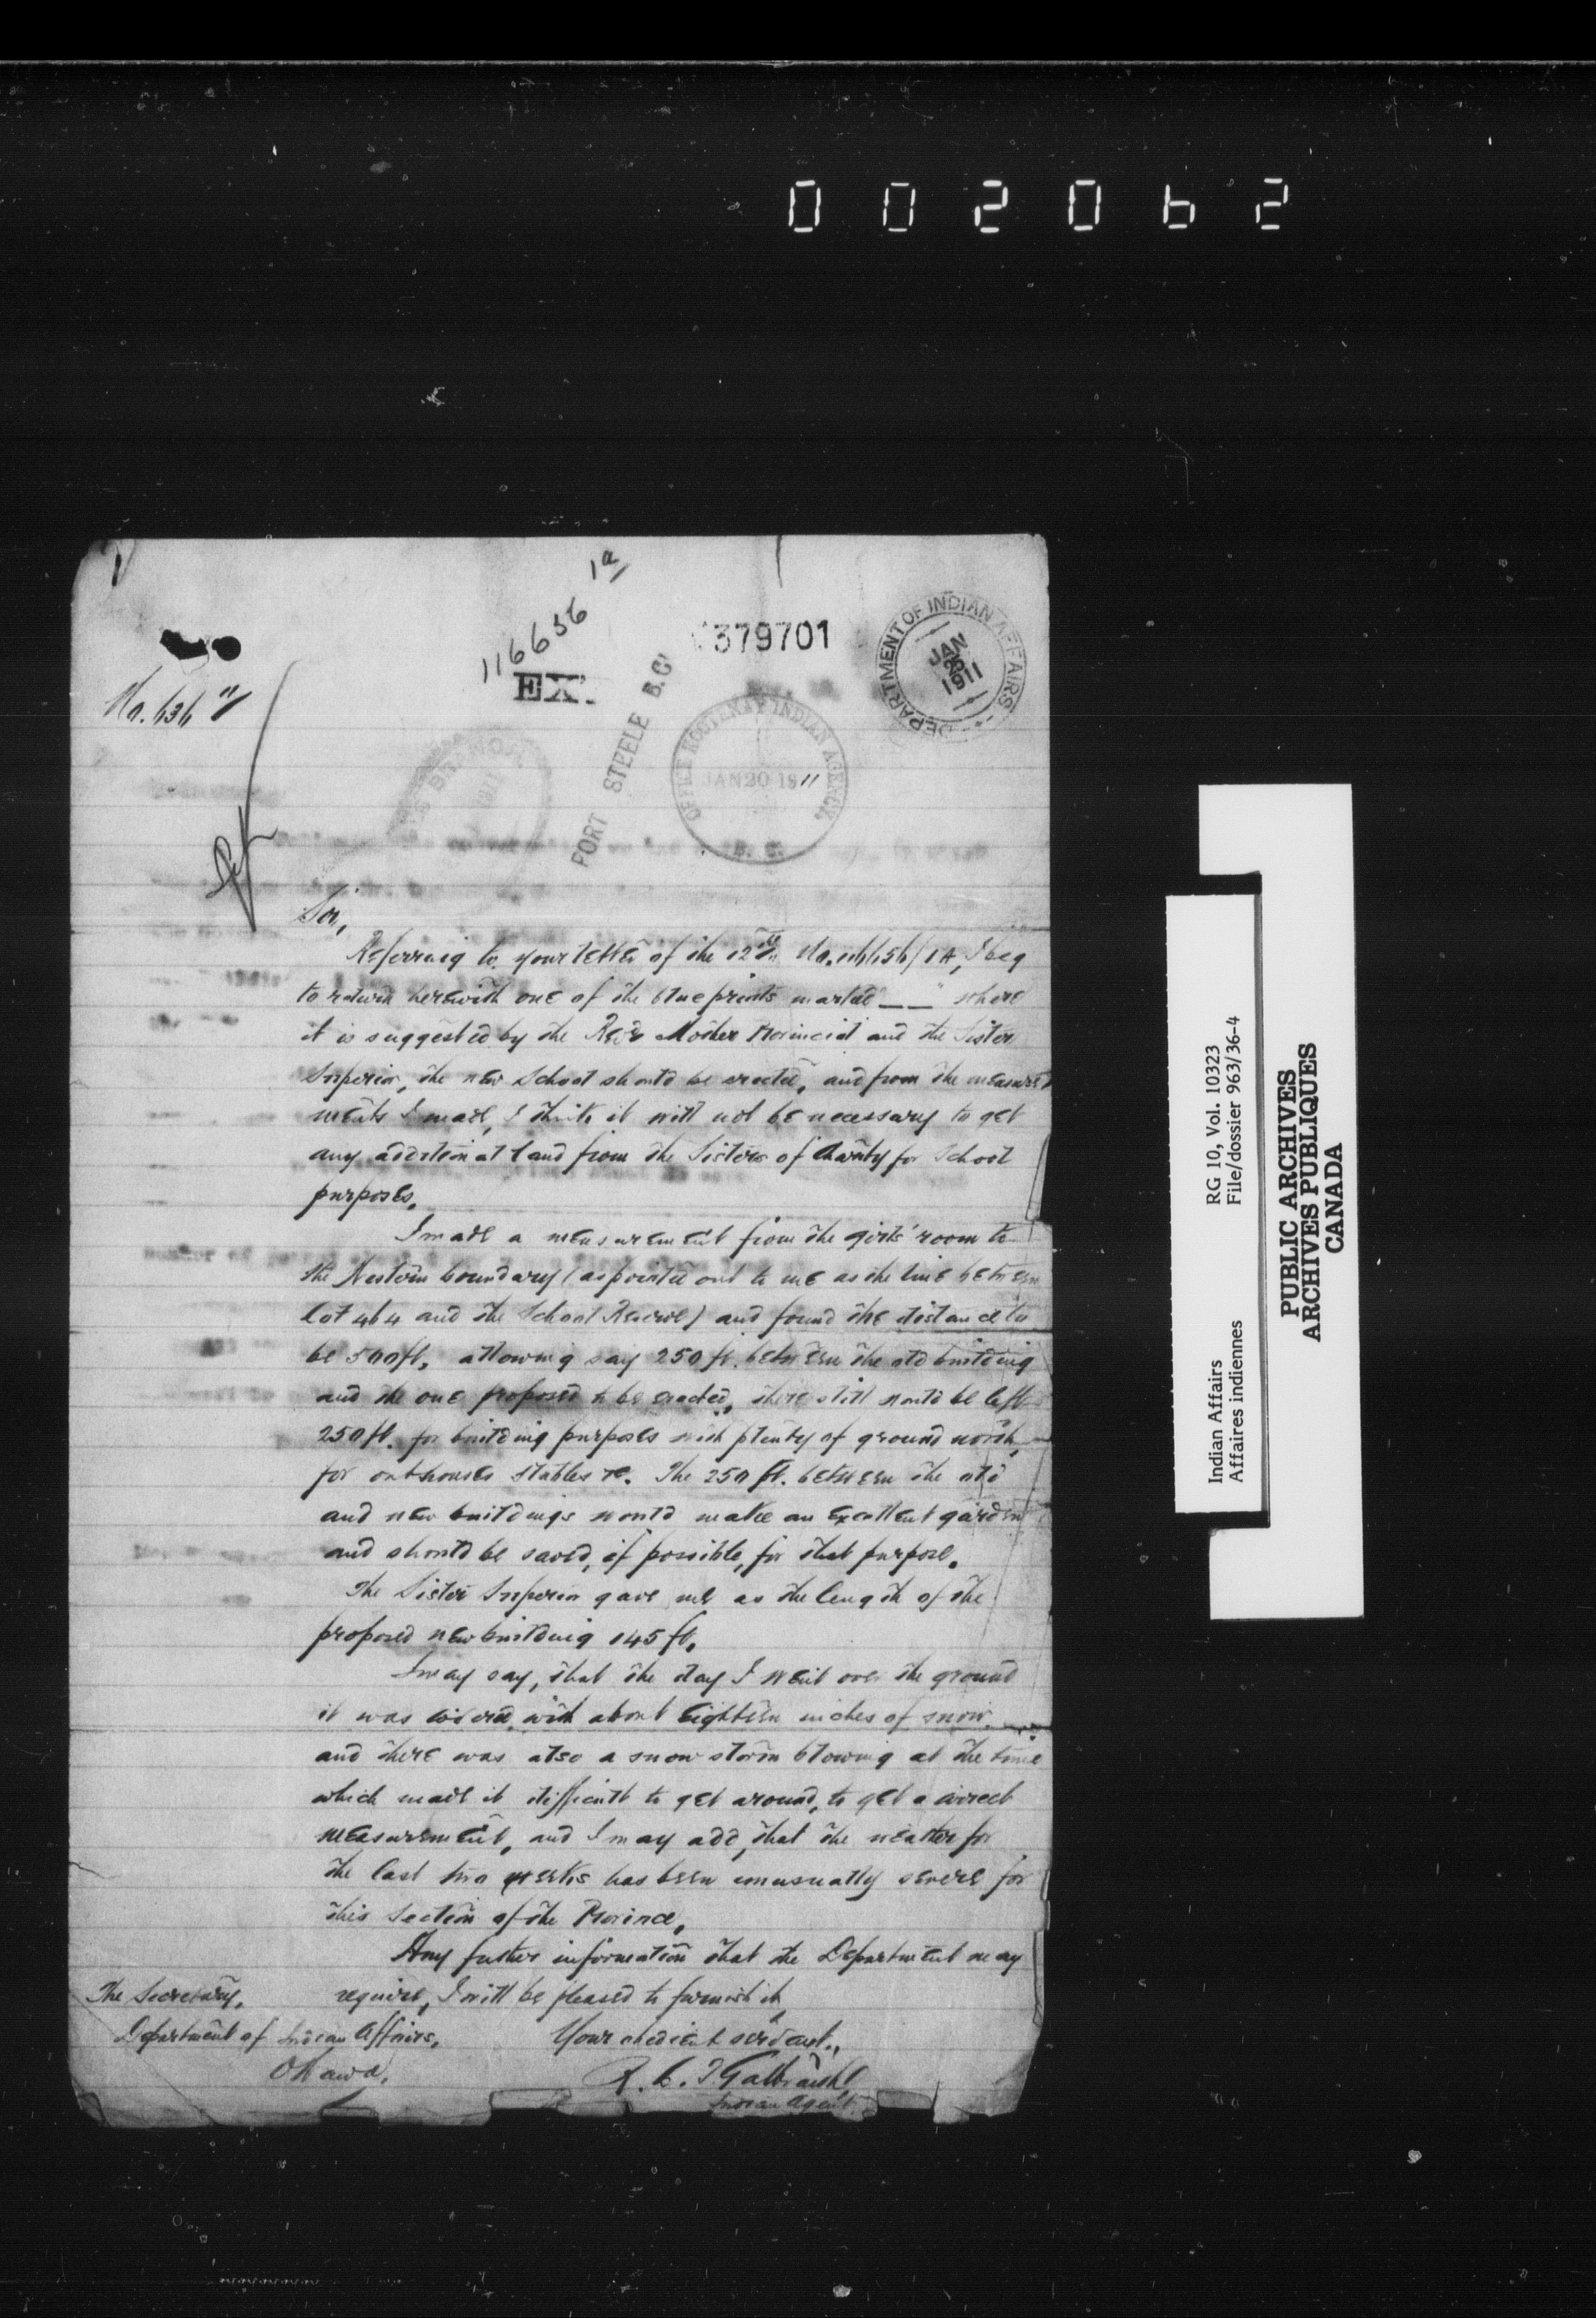 002062
116656 1a/
379701
EX.
DEPARTMENT OF INDIAN AFFAIRS
JAN
1911
No. 636
FORT STEELE B.C.
OFFICE KOOTENAY INDIAN AGENCY.
JAN 20 1911
B. C.
Sir,
Referring to your letter of the 12th No. 116656/1A, I beg
to return herewith one of the blue prints marked "— —" where
it is suggested by the Revd Mother Provincial and the Sister
Superior, the new School should be erected, and from the measure
ments I made, I think it will not be necessary to get
any additional land from the Sisters of Charity for School
purposes.
I made a measurement from the girls' room to
the Western boundary (as pointed out to me as the line between
lot 464 and the School Reserve) and found the distance to
be 500 ft, allowing say 250 ft. between the old building
and the one proposed to be erected, there still would be left
250 ft. for building purposes with plenty of ground north,
for outhouses stables &c. The 250 ft. between the old
and new buildings would make an excellent garden
and should be saved, if possible, for that purpose.
The Sister Superior gave me as the length of the
proposed new building 145 ft.
I may say, that the day I went over the ground
it was covered with about eighteen inches of snow
and there was also a snow storm blowing at the time
which made it difficult to get around, to get a correct
measurement, and I may add, that the weather for
the last two weeks has been unusually severe for
this section of the Province.
Any further information that the Department may
require, I will be pleased to furnish it,
The Secretary,
Department of Indian Affairs,
Ottawa.
Your obedient servant,
R. L. T. Galbraith
Indian Agent.
Indian Affairs RG 10, Vol. 10323
Affaires indiennes File/dossier 963/36-4
PUBLIC ARCHIVES
ARCHIVES PUBLIQUES
CANADA